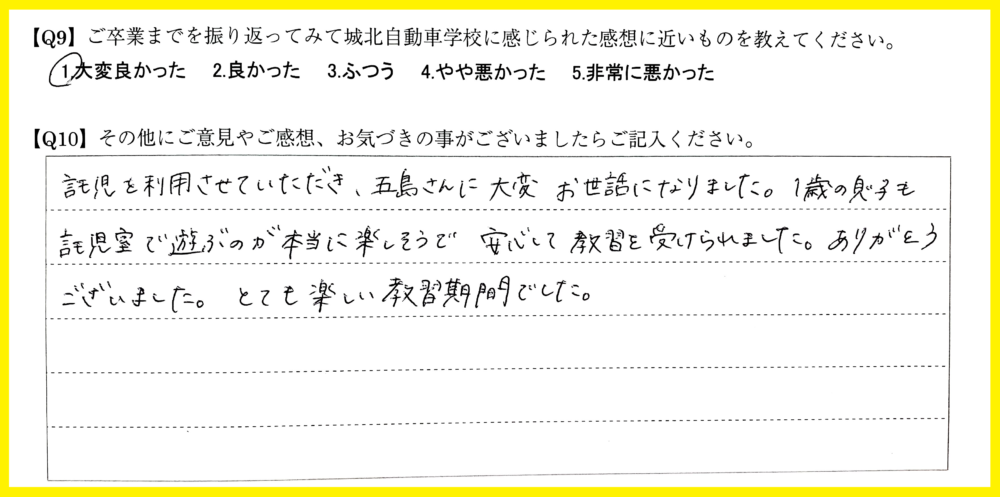 【Q9】ご卒業までを振り返ってみて城北自動車学校に感じられた感想に近いものを教えてください。
1.大変良かった 2.良かった 3.ふつう 4.やや悪かった 5.非常に悪かった
【Q10】その他にご意見やご感想、お気づきの事がございましたらご記入ください。
託児を利用させていただき、五島さんに大変お世話になりました。1歳の息子も
託児室で遊ぶのが本当に楽しそうで安心して教習を受けられました。ありがとう
ございました。とても楽しい教習期間でした。